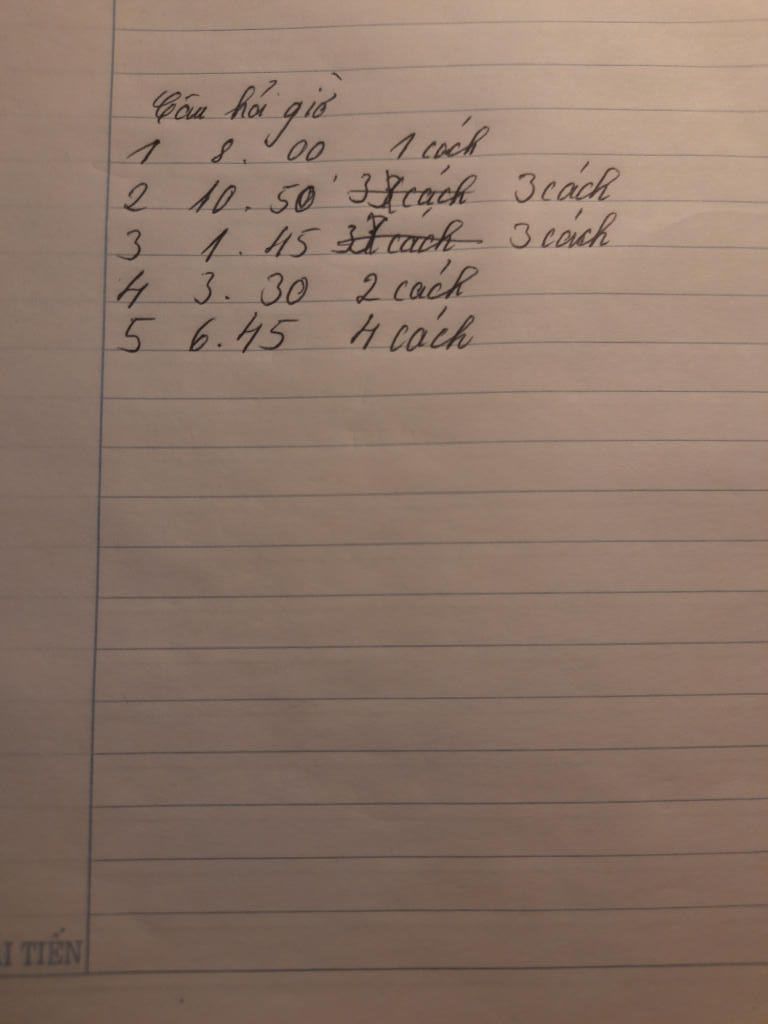 Câu hỏi giờ
1 8. 00 1 cách
2 10. 50' 3 cách 3 cách
3 1. 45 3 cách 3 cách
4 3. 30 2 cách
5 6. 45 4 cách
TIẾN